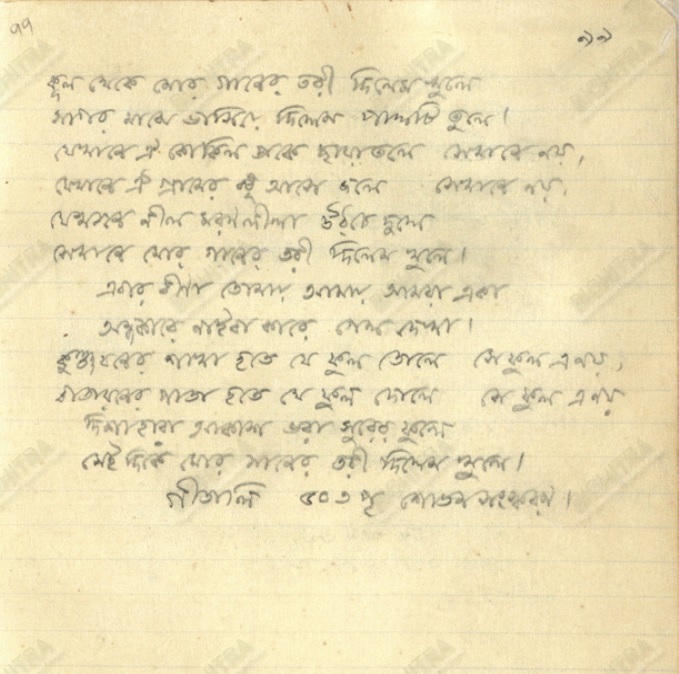 ৭৭
৯৯
কূল থেকে মোর গানের তরী দিলেম খুলে
সাগর মাঝে ভাসিয়ে দিলেম পালটি তুলে।
যেখানে ঐ কোকিল ডাকে ছায়াতলে সেখানে নয়,
যেখানে ঐ গ্রামের বধূ আসে জলে সেখানে নয়,
যেখানে নীল মরণলীলা উঠচে দুলে
সেখানে মোর গানের তরী দিলেম খুলে।
এবার বীণা তোমায় আমায় আমরা একা
অন্ধকারে নাইবা কারে গেল দেখা।
কুঞ্জবনের শাখা হতে যে ফুল তোলে সে ফুল এ নয়,
বাতায়নের পাতা হতে যে ফুল দোলে সে ফুল এ নয়
দিশাহারা আকাশ ভরা সুরের ফুলে
সেই দিকে মোর গানের তরী দিলেম খুলে।
গীতালি ৫০৩ পৃ শোভন সংস্করণ।